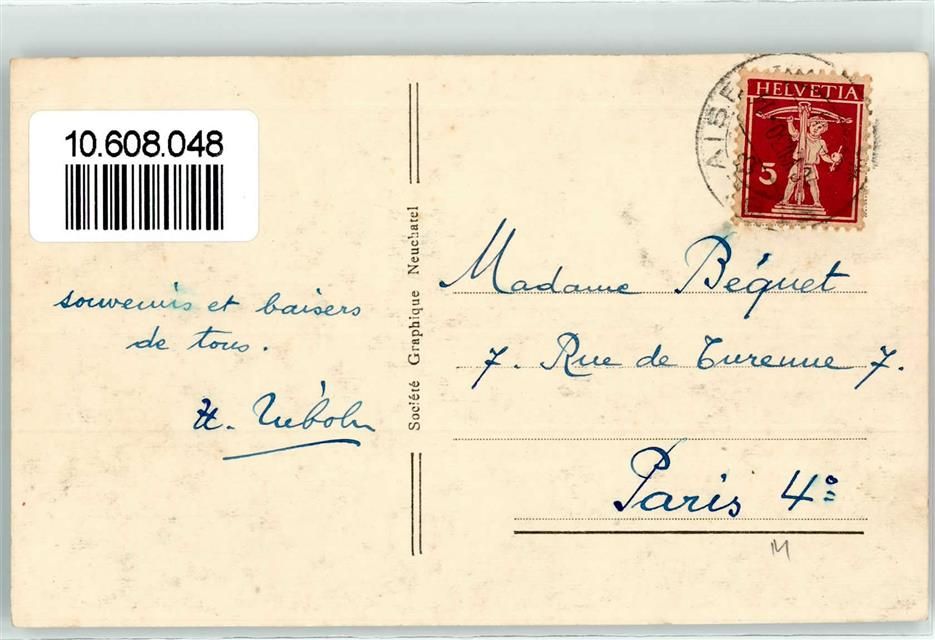 10.608.048
souvenirs et baisers
de tous.
Société Graphique Neuchatel
HELVETIA
5
Madame Béquet
7. Rue de Turenne 7.
Paris 4º
M